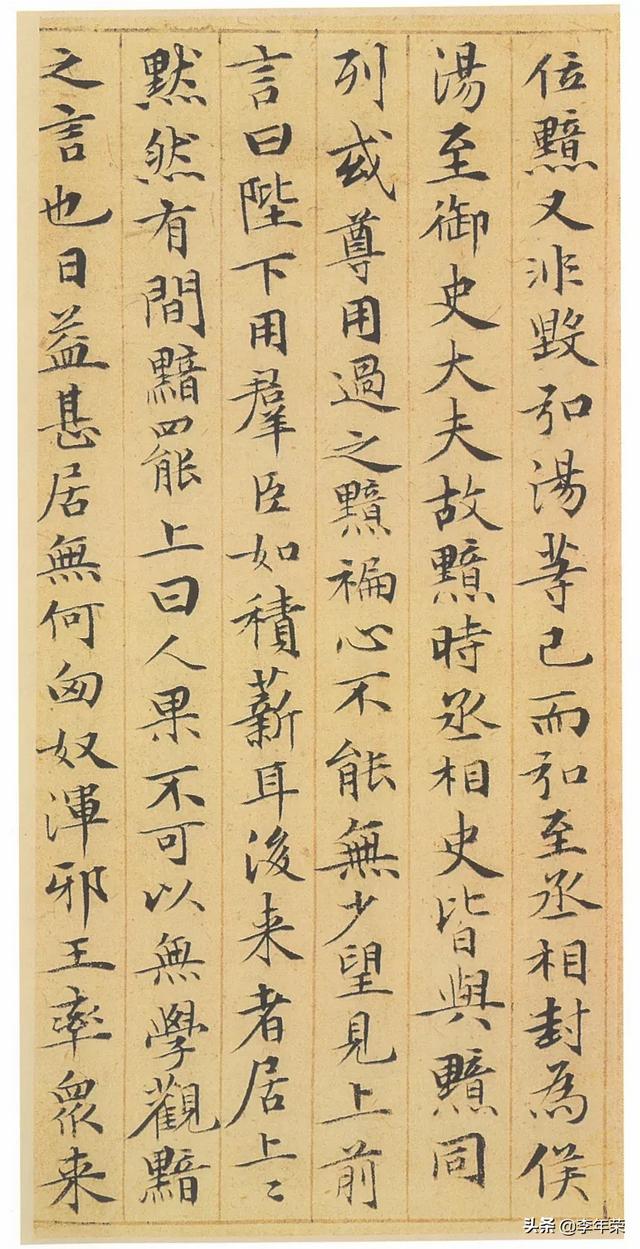 位黯又非毀弘湯等已而弘至丞相封為侯
湯至御史大夫故黯時丞相史皆與黯同
列或尊用過之黯褊心不能無少望見上前
言曰陛下用羣臣如積薪耳後来者居上〻
黙然有間黯罷上曰人果不可以無學觀黯
之言也日益甚居無何匈奴渾邪王率眾来
头条 @李年荣